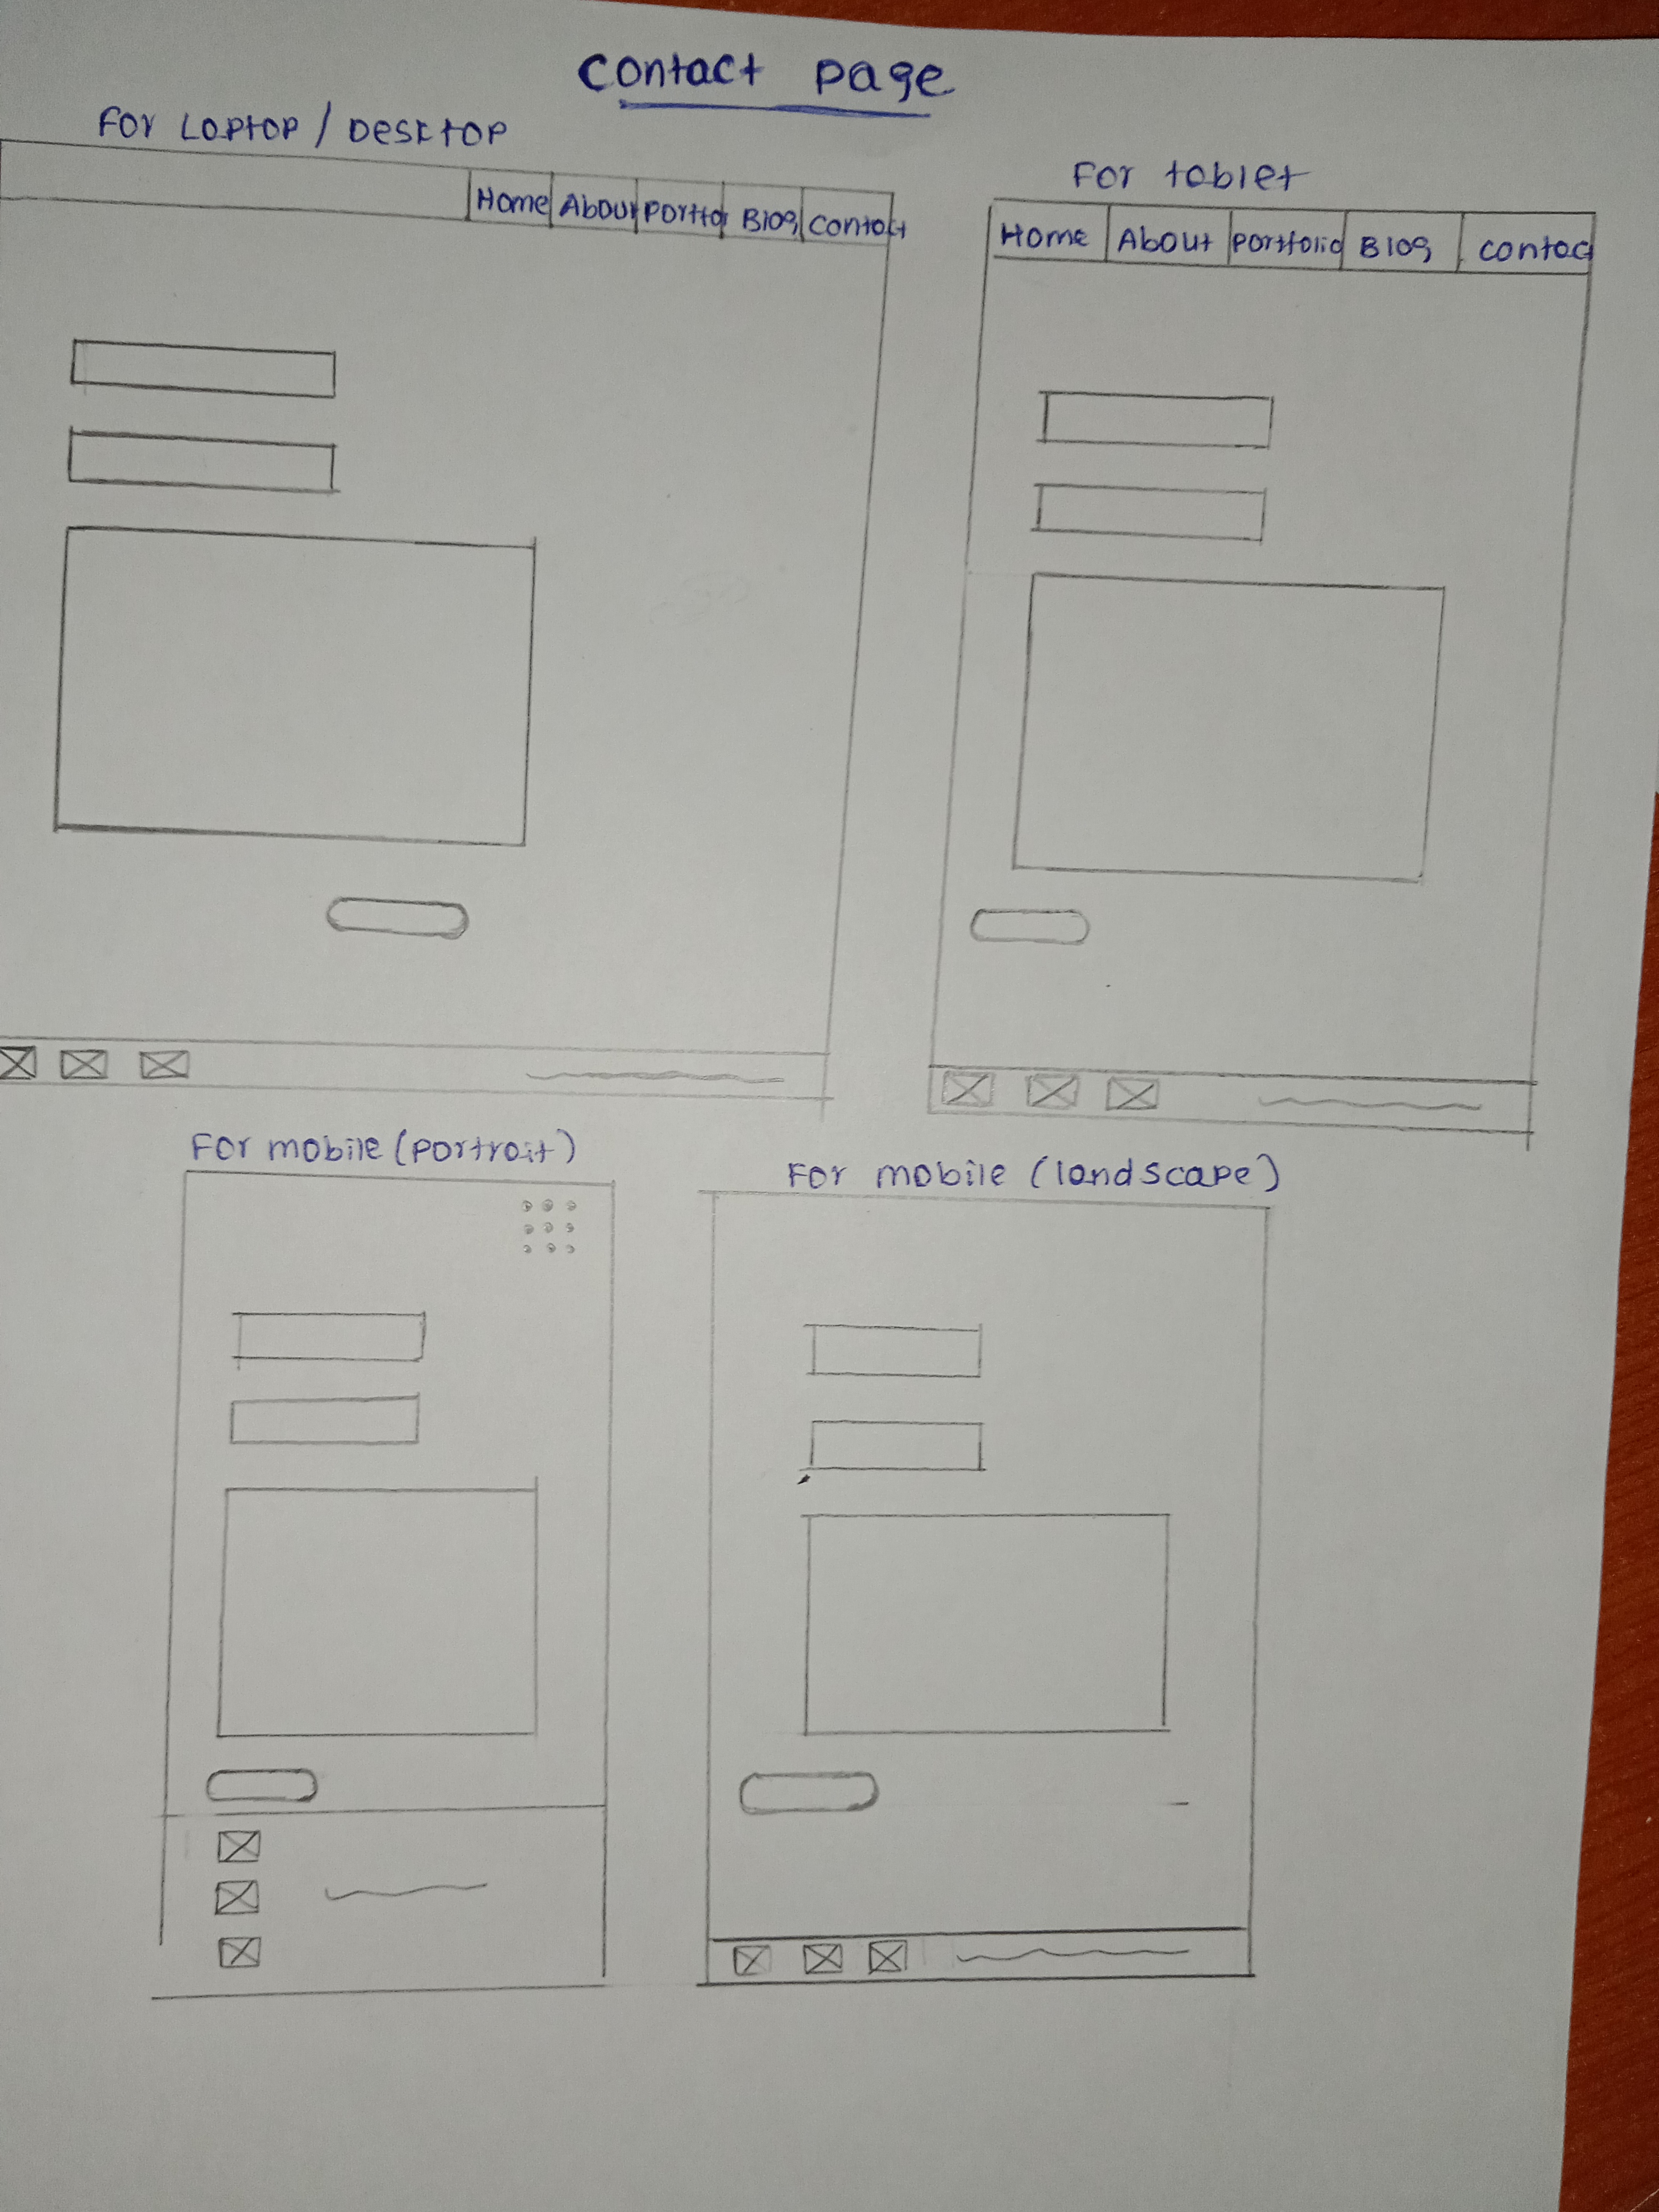 contact page
For Laptop / Desktop
Home About Portfo Blog Contact
For tablet
Home About Portfolio Blog contac
For mobile (portrait)
For mobile (landscape)